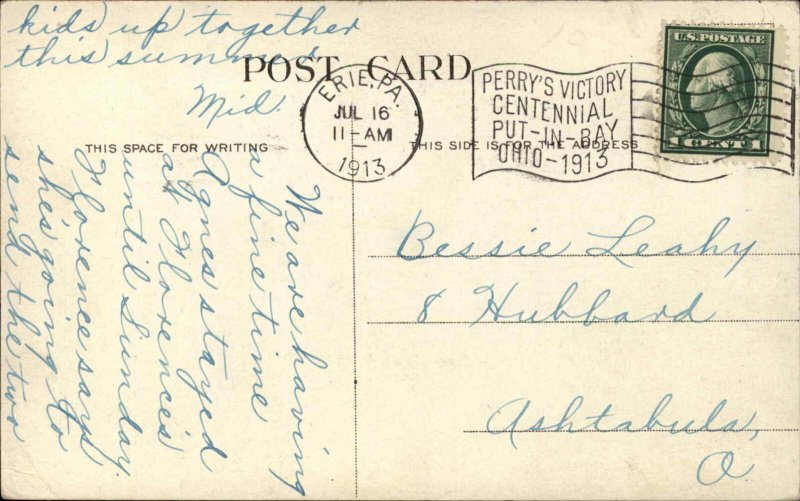 POST CARD
THIS SPACE FOR WRITING
THIS SIDE IS FOR THE ADDRESS
ERIE, PA.
JUL 16
11-AM
1913
PERRY'S VICTORY
CENTENNIAL
PUT-IN-BAY
OHIO-1913
U.S. POSTAGE
1 CENT 1
We are having
a fine time
Agnes stayed
at Florence's
until Sunday.
Florence says
she's going to
send the two
kids up together
this summer
Mid.
Bessie Leahy
8 Hubbard
Ashtabula,
O.